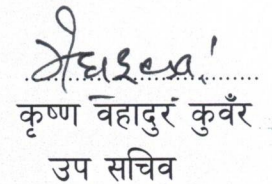 कृष्ण वहादुर कुवँर
उप सचिव